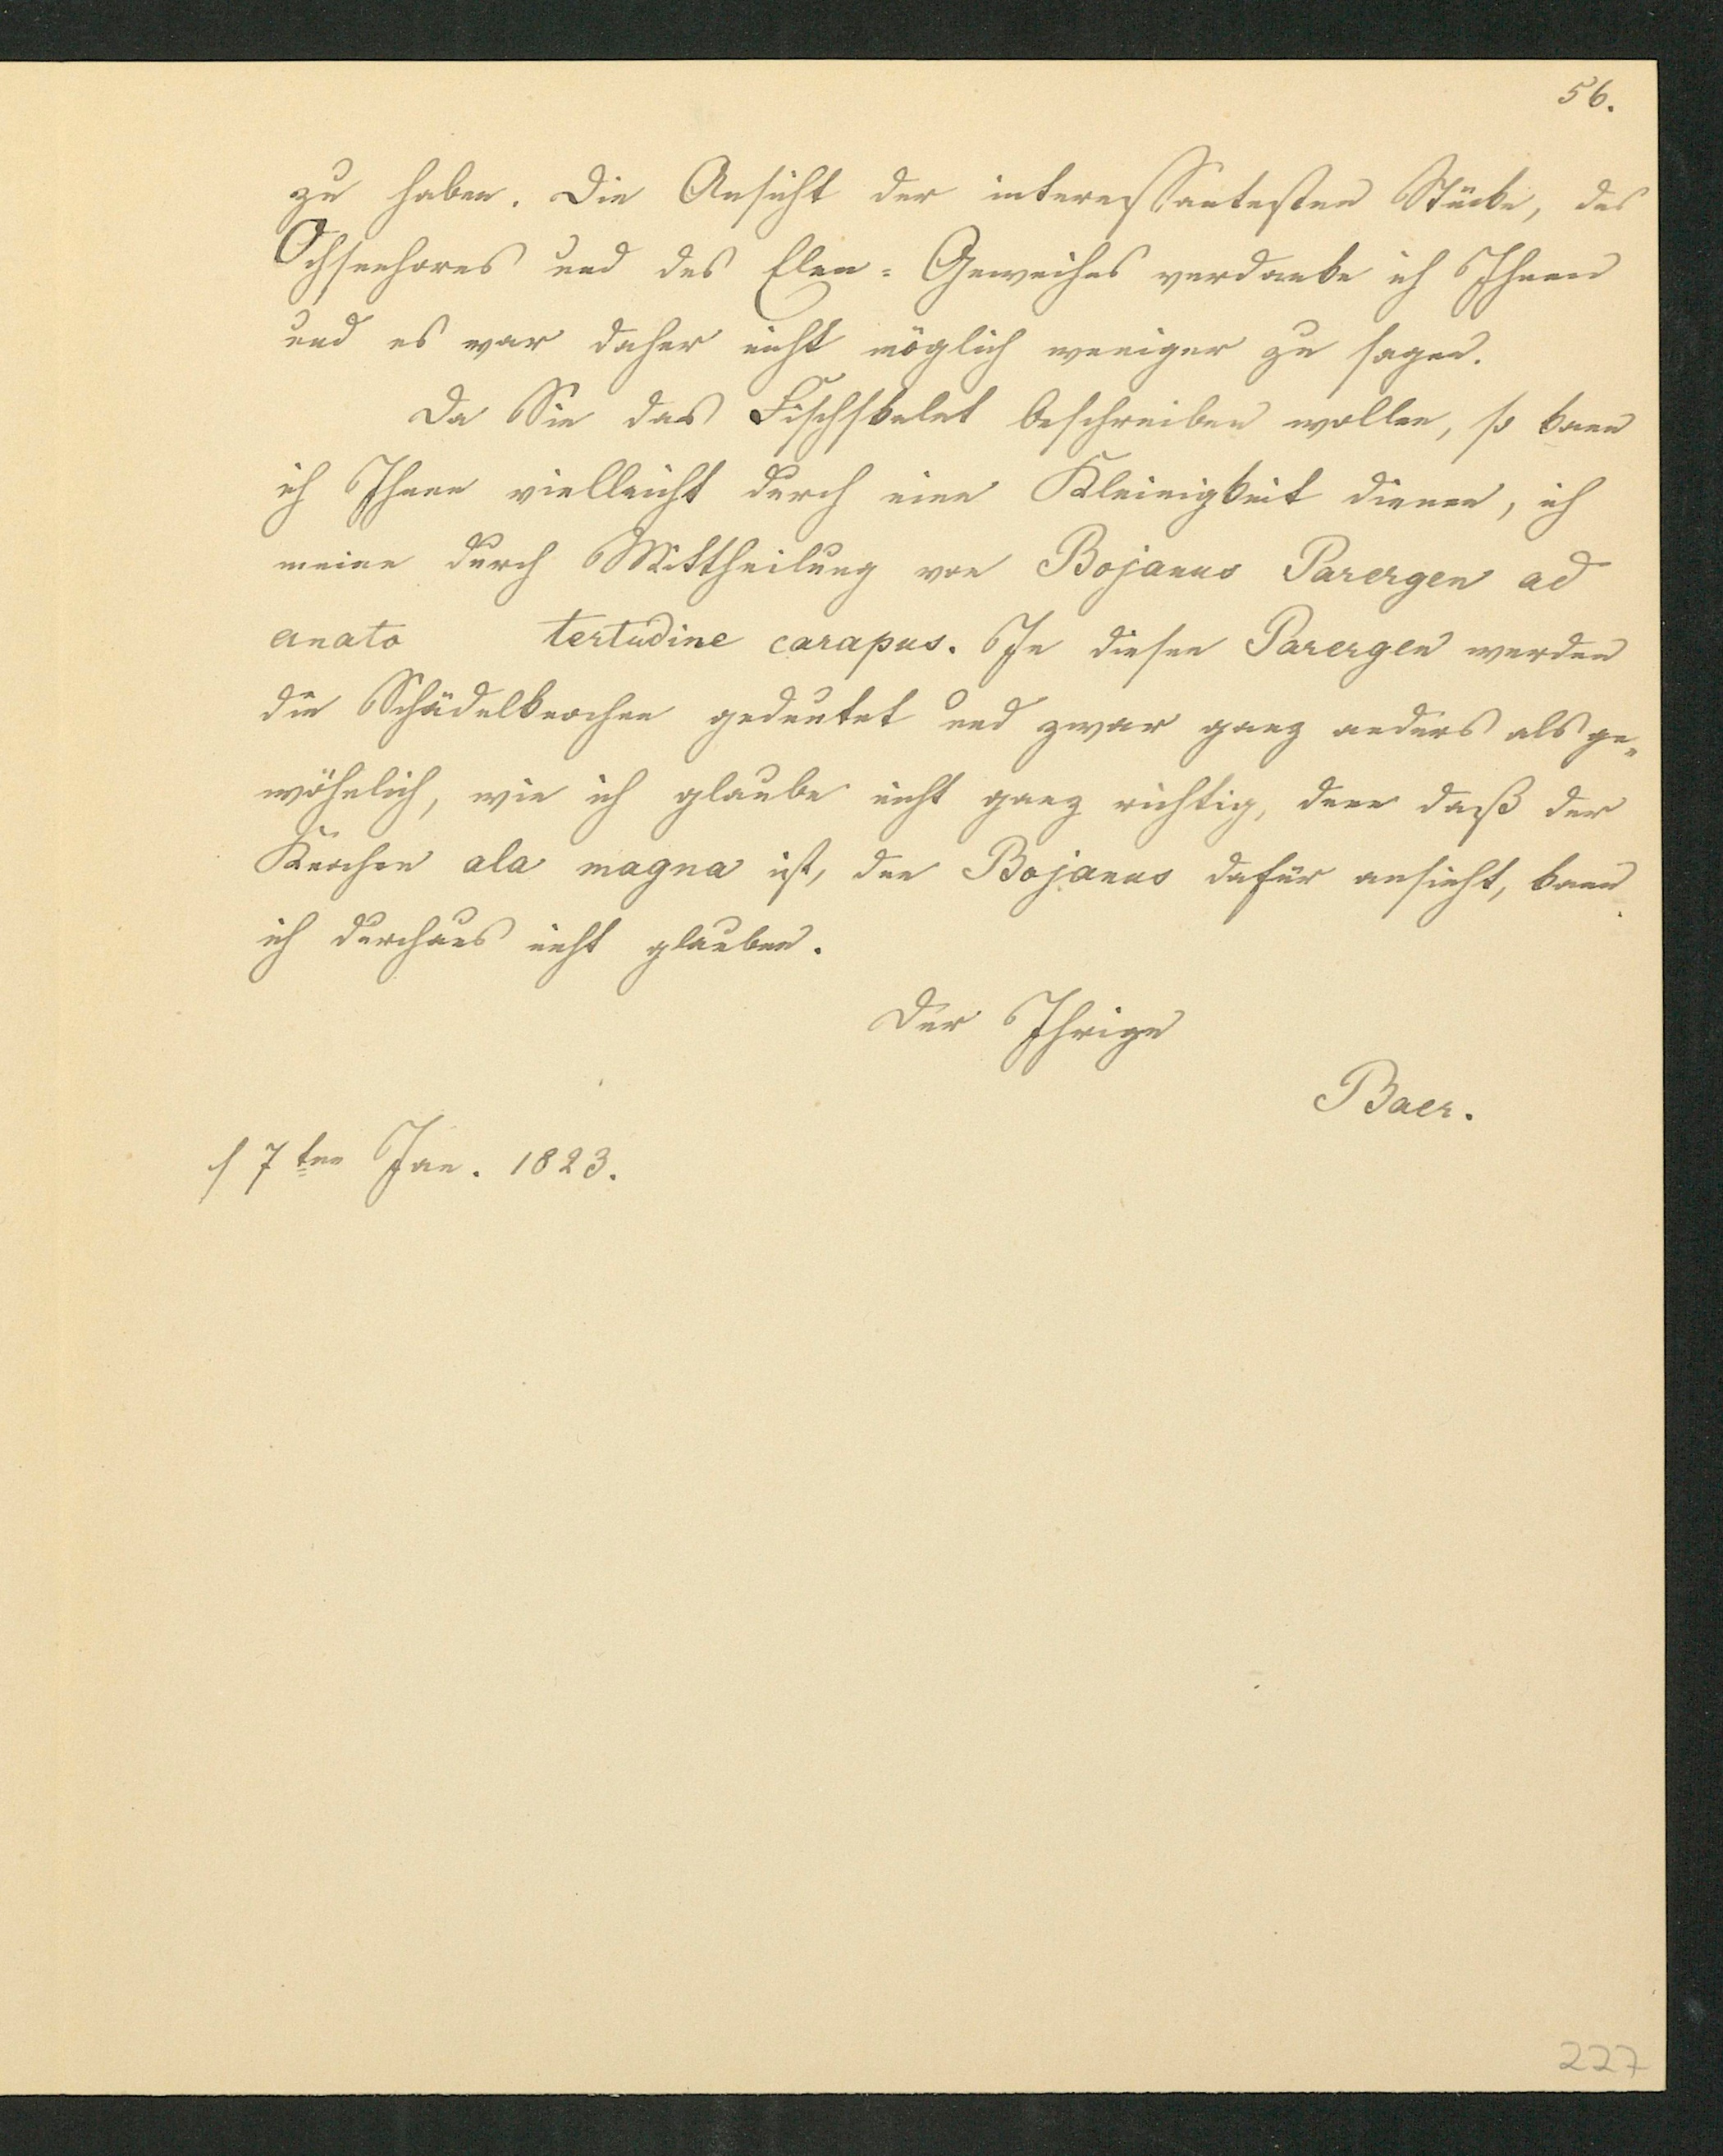 56.
zu haben. Die Ansicht der interessantesten Stücke, des
Ochsenhornes und des Elen-Geweihes verdanke ich Ihnen
und es war daher nicht möglich weniger zu sagen.
Da Sie das Fischskelet beschreiben wollen, so kann
ich Ihnen vielleicht durch eine Kleinigkeit dienen, ich
meine durch Mittheilung von Bojanus Parergen ad
anato tertudine carapus. In diesen Parergen werden
die Schädelknochen gedeutet und zwar ganz anders als ge-
wöhnlich, wie ich glaube nicht ganz richtig, denn daß der
Knochen ala magna ist, den Bojanus dafür ansieht, kann
ich durchaus nicht glauben.
Der Ihrige
Baer.
17ten Jan. 1823.
227